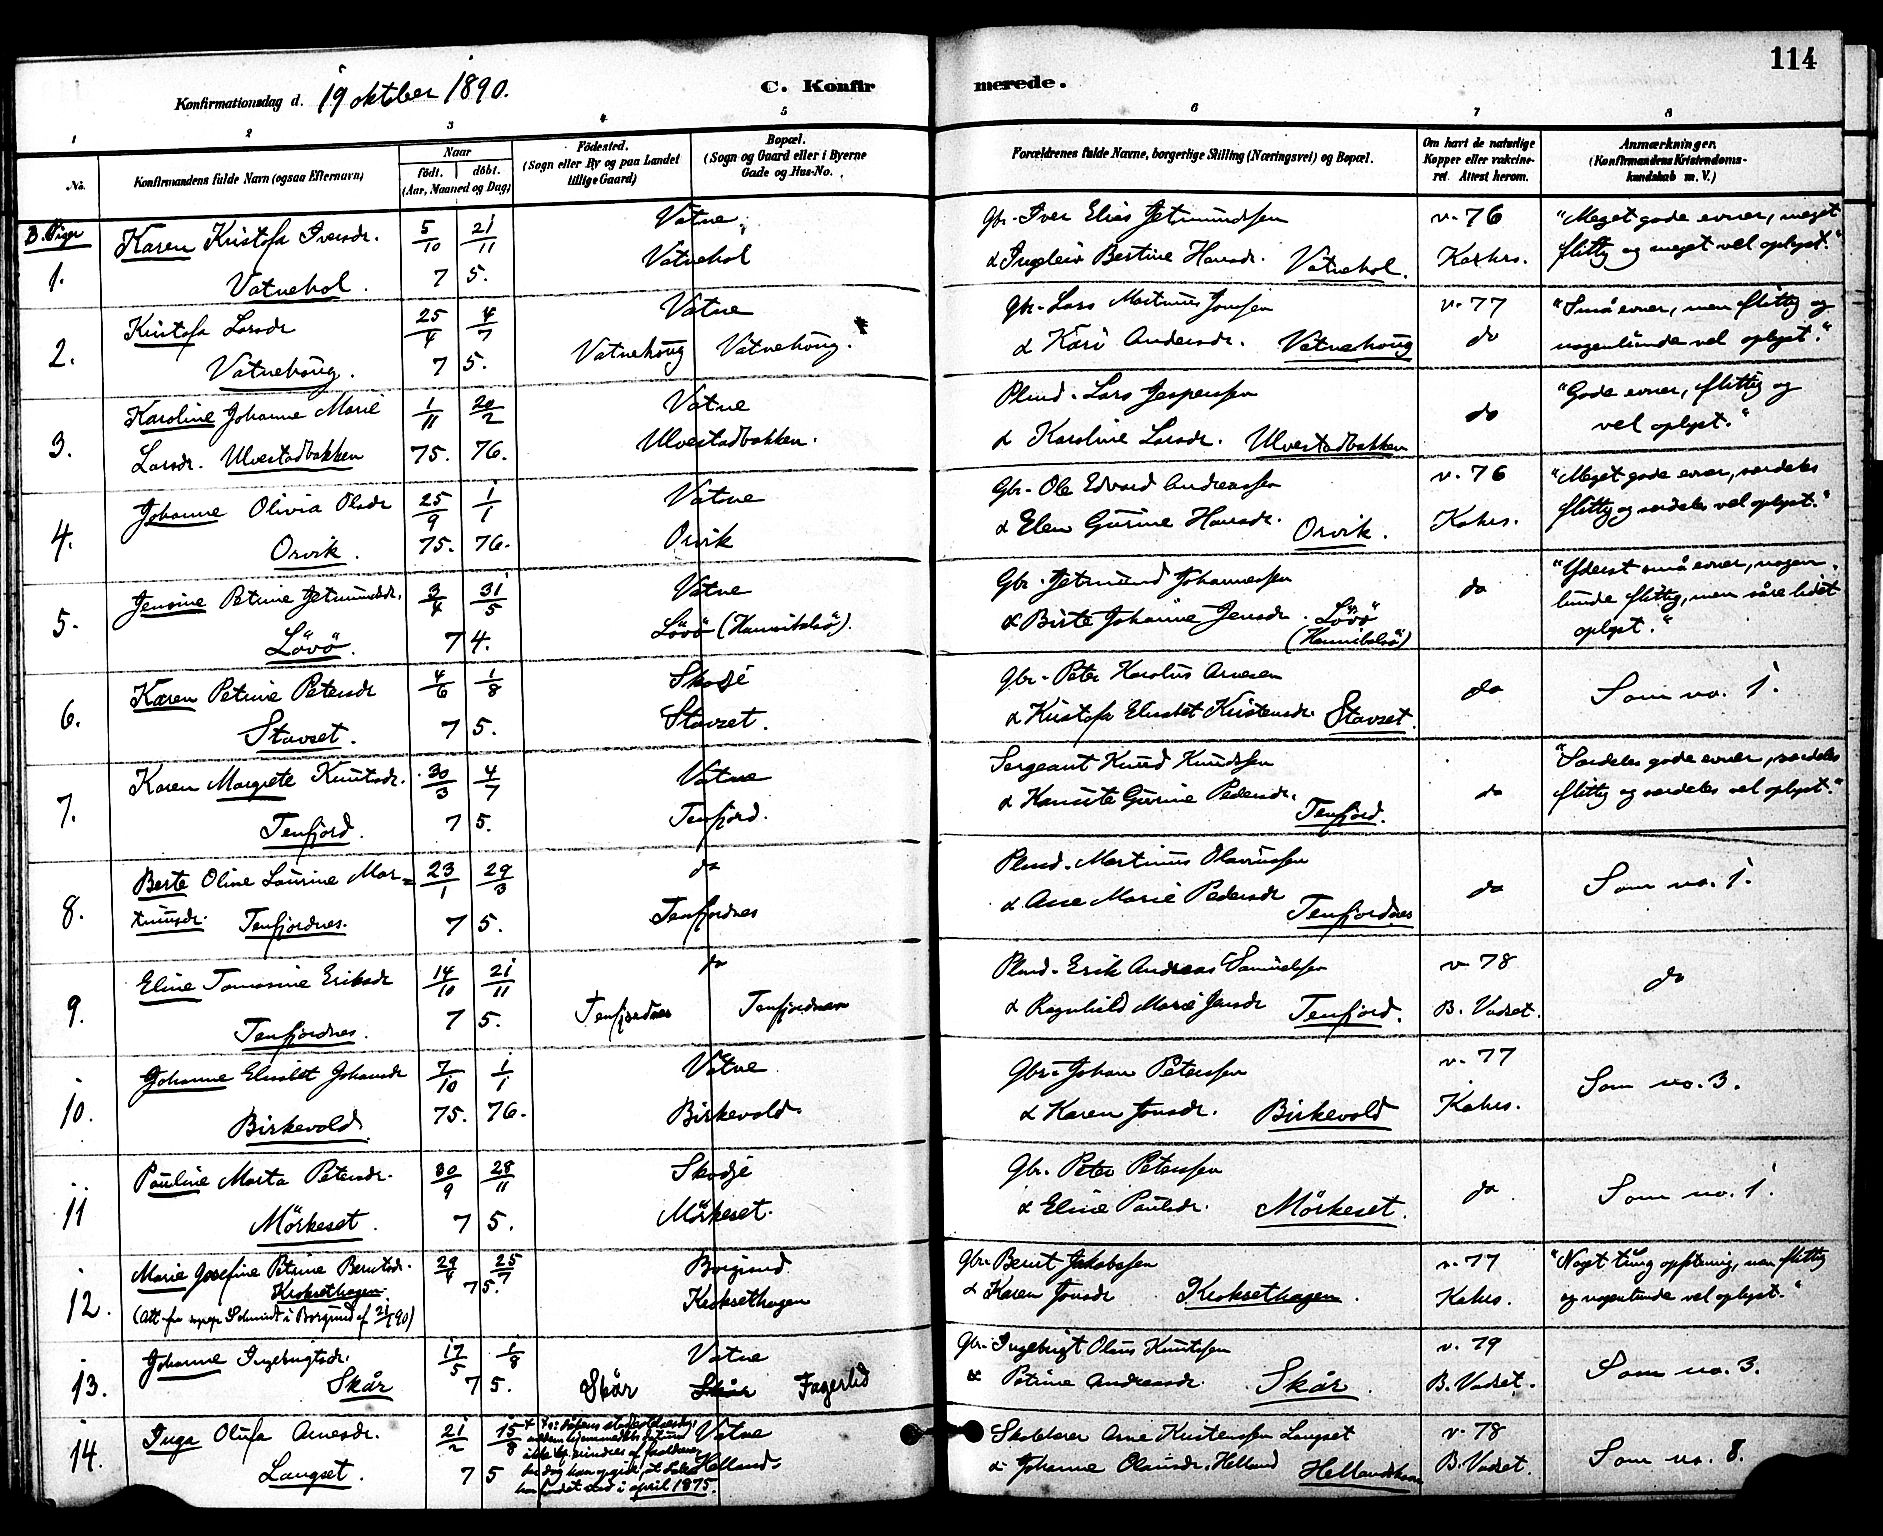 114
Konfirmationsdag d. 19 oktober 1890.
C. Konfirmerede.
1 2 3 4 5 6 7 8
No.
Konfirmandens fulde Navn (ogsaa Efternavn)
Naar
födt. döbt.
(Aar, Maaned og Dag)
Födested.
(Sogn eller By og paa Landet
tillige Gaard)
Bopæl.
(Sogn og Gaard eller i Byerne
Gade og Hus-No.
Forældrenes fulde Navne, borgerlige Stilling (Næringsvei) og Bopæl.
Om havt de naturlige
Kopper eller vaccineret.
Attest herom.
Anmærkninger.
(Konfirmandens Kristendomskundskab m. V.)
B. Piger
1. Karen Kristofa Iversdr. 5/10 21/11 Vatne, Gbr. Iver Elias Jetmundsen v. 76 "Meget gode evner, meget
Vatnehol. 7 5. Vatnehol & Ingeleiv Bertine Hansdr. Vatnehol. Kahrs. flittig og meget vel oplyst."
2. Kristofa Larsdr 25/4 4/7 Vatne Gbr. Lars Martinus Jonssen v. 77 "Små evner, men flittig og
Vatnehoug. 7 5. Vatnehoug Vatnehoug. & Kari Andersdr. Vatnehoug do nogenlunde vel oplyst."
3. Karoline Johanne Marie 1/11 20/2 Vatne Plmd. Lars Jespersen do "Gode evner, flittig og
Larsdr. Ulvestadbakken 75. 76. Ulvestadbakken. & Karoline Larsdr. Ulvestadbakken vel oplyst."
4. Johanne Olivia Olsdr 25/9 1/1 Vatne Gbr. Ole Edvard Andreassen v. 76 "Meget gode evner, særdeles
Orvik. 75. 76. Orvik & Elen Gurine Hansdr. Orvik. Kahrs. flittig og særdeles vel oplyst."
5. Jensine Petrine Jetmundsdr. 3/4 31/5 Vatne Gbr. Jetmund Johannessen do "Yderst små evner, nogen-
Lövö. 7 4. Lövö (Hannibalsö). & Birte Johanne Jensdr. Lövö lunde flittig, men såre lidet
(Hannibalsö) oplyst."
6. Karen Petrine Petersdr 4/6 1/8 Skodje Gbr. Peter Karolus Arnesen do Som no. 1.
Stavset. 7 5. Stavset. & Kristofa Elisabet Kristensdr. Stavset.
7. Karen Margrete Knutsdr. 30/3 4/7 Vatne Sergeant Knud Knudsen do "Særdeles gode evner, særdeles
Tenfjord. 7 5. Tenfjord. & Hansine Gurine Pedersdr. Tenfjord. flittig og særdeles vel oplyst."
8. Berte Oline Laurine Mar= 23/1 29/3 do Plmd. Martinus Olaussen do Som no. 1.
tinusdr. Tenfjordnes. 7 5. Tenfjordnes & Ane Marie Pedersdr Tenfjordnes
9. Eline Tomasine Eriksdr 14/10 21/11 do Plmd. Erik Andreas Samuelsen v. 78 do
Tenfjordnes. 7 5. Tenfjordnes Tenfjordnes & Ragnhild Marie Jensdr Tenfjord. B. Vadset.
10. Johanne Elisabet Johansdr 7/10 1/1 Vatne Gbr. Johan Peterssen v. 77 Som no. 3.
Birkevold. 75. 76. Birkevold & Karen Jonsdr. Birkevold Kahrs.
11 Pauline Marta Petersdr. 30/9 28/11 Skodje Gbr. Peter Peterssen do Som no. 1.
Mörkeset. 7 5. Mörkeset. & Eline Paulsdr. Mörkeset.
12. Marie Josefine Petrine Berntsdr. 29/4 25/7 Borgund Gbr. Bernt Jakobssen v. 77 "Noget tung opfatning, men flittig
Kroksethagen. 7 5. Kroksethagen & Karen Jonsdr Kroksethagen. Kahrs. og nogenlunde vel oplyst."
(Att. fra Schmidt i Borgund af 90)
13. Johanne Ingebrigtsdr. 17/5 1/8 Vatne Gbr. Ingebrigt Olaus Knutssen v. 79 Som no. 3.
Skår 7 5. Skår Skår Fagerlid & Petrine Andreasdr Skår. B. Vadset.
14. Inga Olufa Arnesdr. 21/2 15/8 Vatne Skolelærer Arne Kristenssen Langset v. 78 Som no. 8.
Langset. 7 5 Helland. & Johanne Olausdr. Helland B. Vadset.
har fundet sted i april 1875.